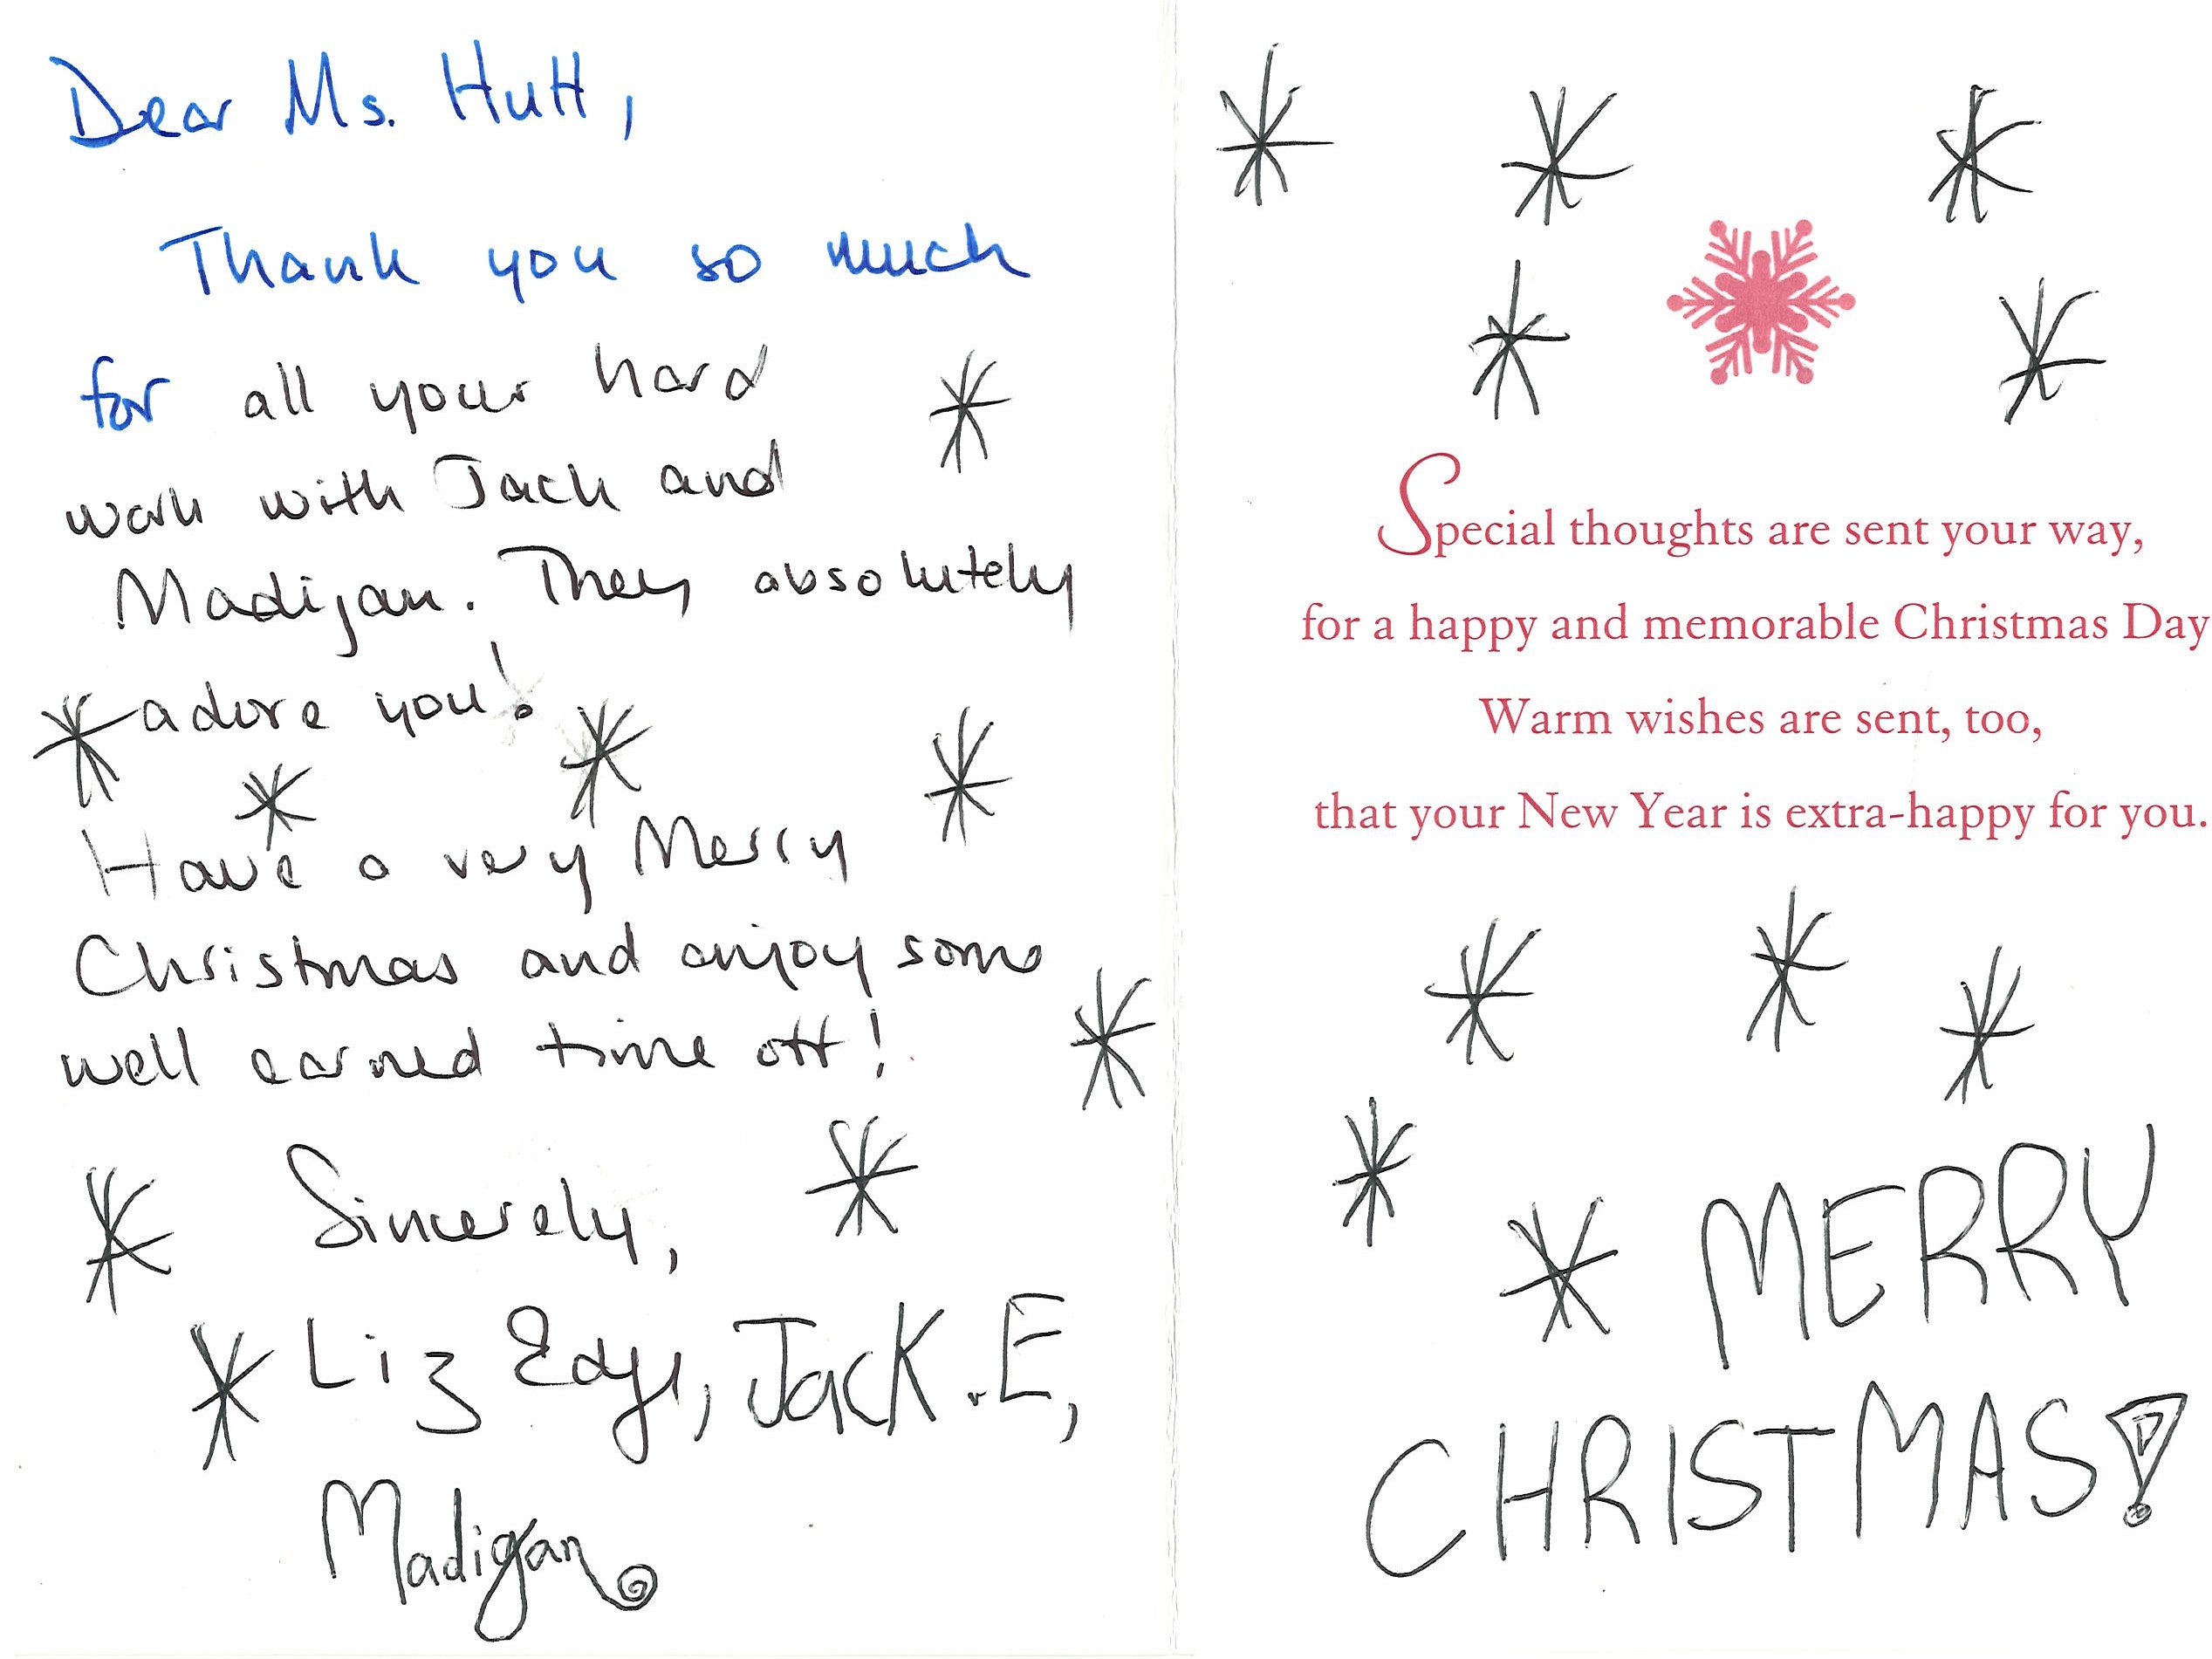 Dear Ms. Hutt,
Thank you so much
for all your hard
work with Jack and
Madigan. They absolutely
adore you!
Have a very Merry
Christmas and enjoy some
well earned time off!
Sincerely,
Liz Jack .E,
Madigan
Special thoughts are sent your way,
for a happy and memorable Christmas Day
Warm wishes are sent, too,
that your New Year is extra-happy for you.
MERRY
CHRISTMAS!